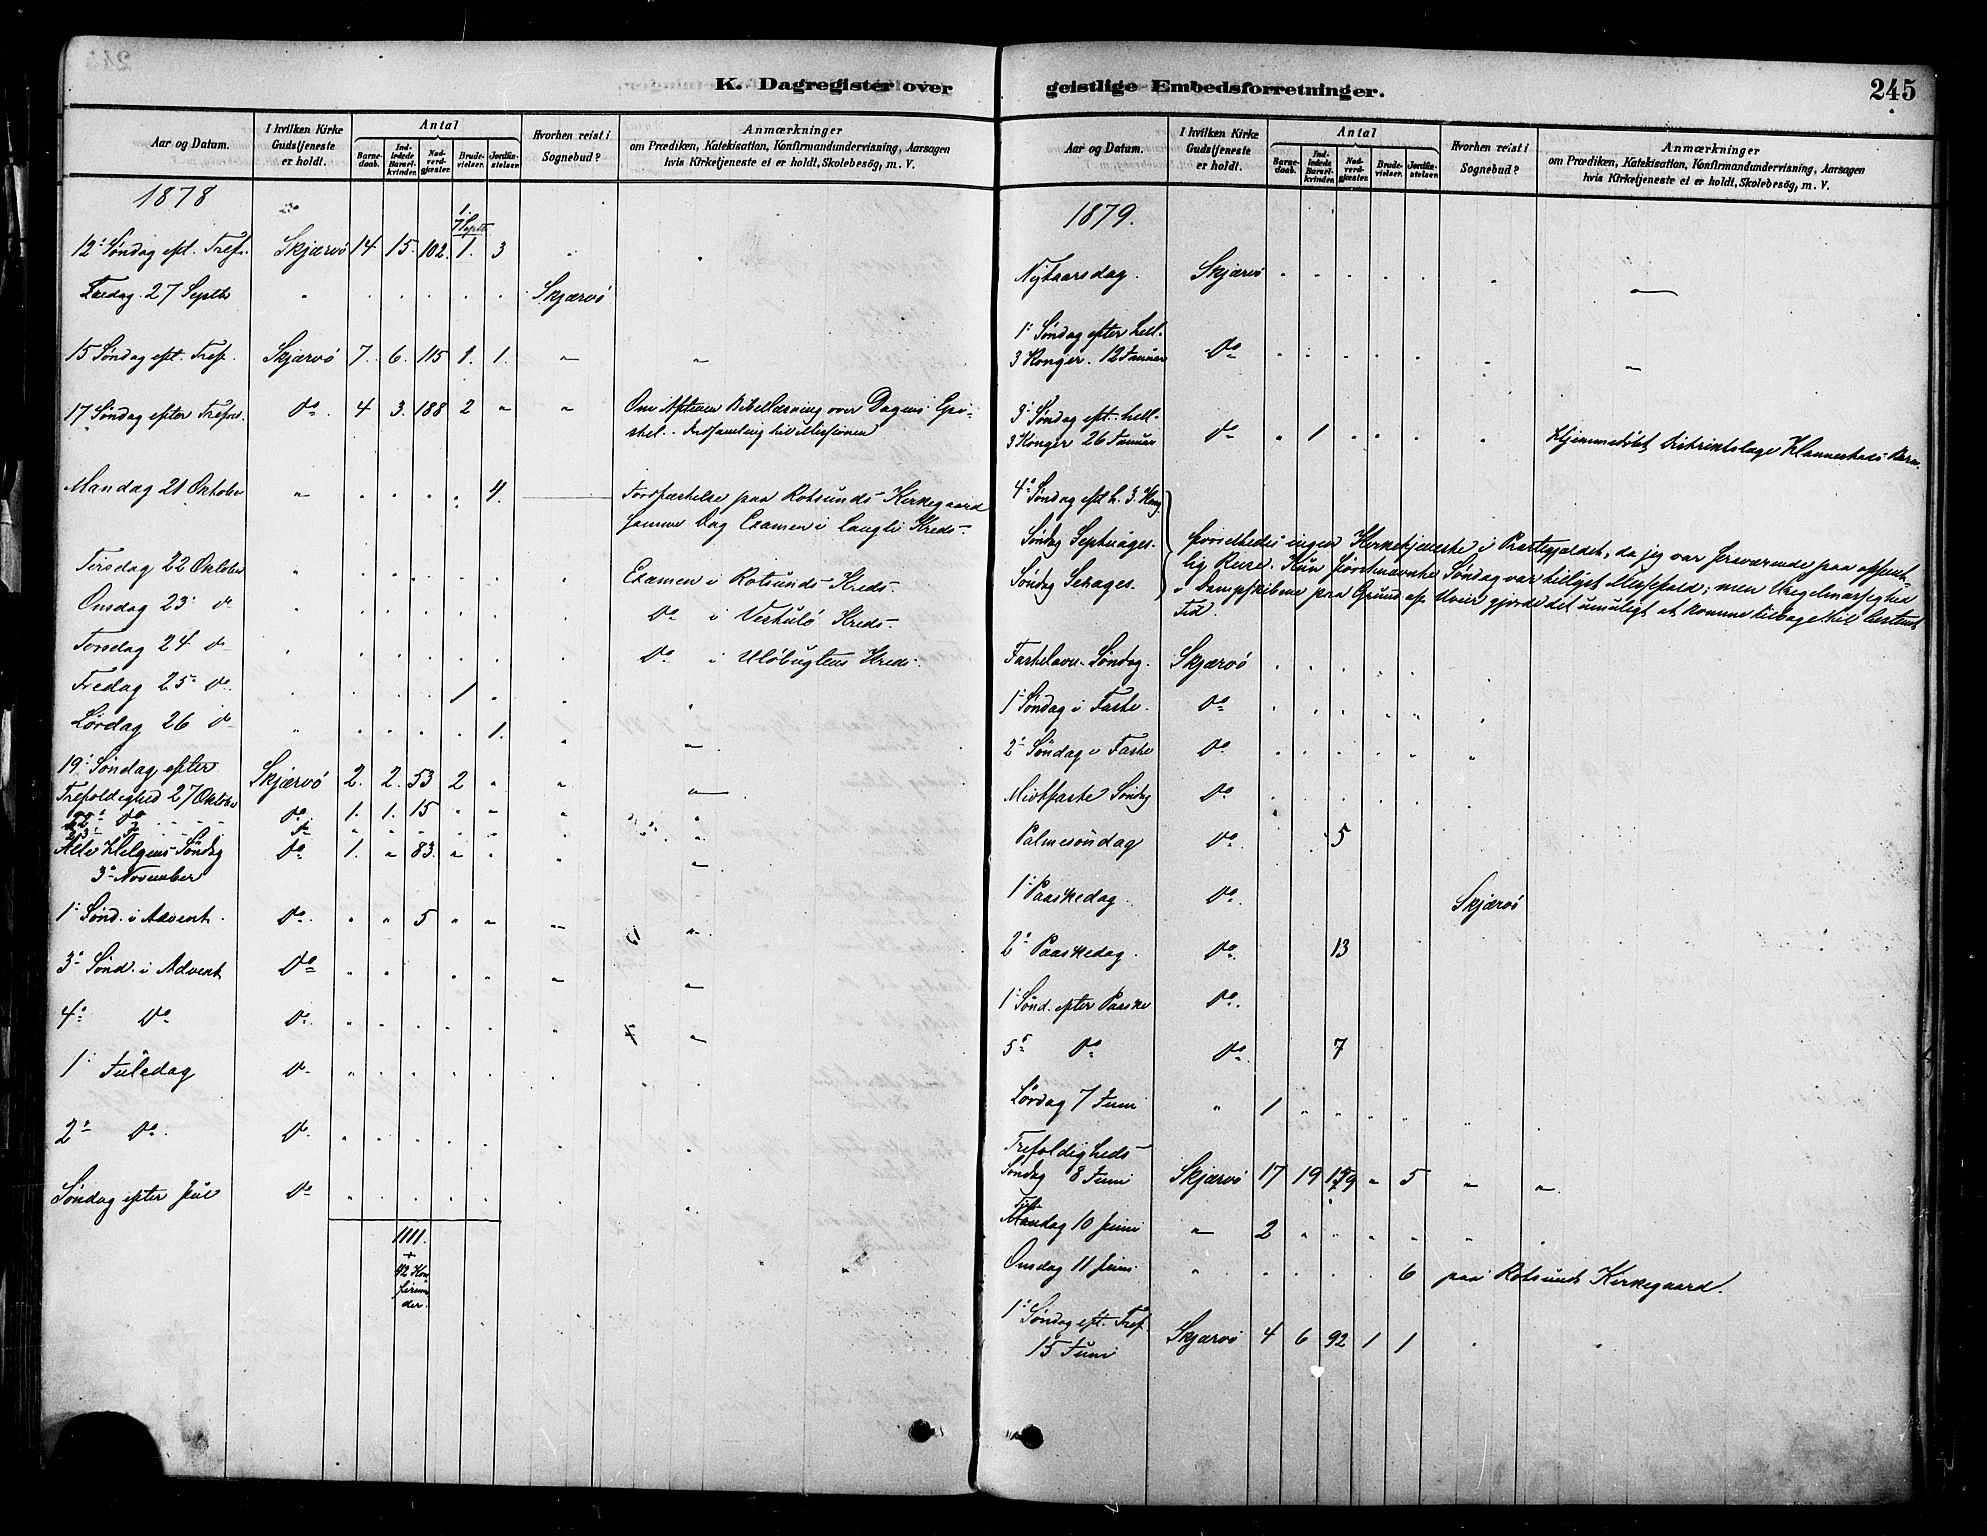 K. Dagregister over geistlige Embedsforretninger.
245
Aar og Datum.
I hvilken Kirke Gudstjeneste er holdt.
Antal
Barnedaab.
Indledede Barselkvinder.
Nadverdgjæster.
Brudevielser.
Jordfæstelser.
Hvorhen reist i Sognebud?
Anmærkninger
om Prædiken, Katekisation, Konfirmandundervisning, Aarsagen
hvis Kirketjeneste ei er holdt, Skolebesøg, m. V.
1878
7 Septb.
12: Søndag eft. Tref. Skjærvö 14. 15. 102. 1. 3
Fredag 27 Septb Skjærvö
15 Søndag eft. Tref. Skjærvö 7. 6. 115 1. 1. " "
17 Søndag efter Trefol. do. 4 3. 188 2 " " Om Aftenen Bibellæsning over Dagens Epi-
stel. Indsamling til Missionen
Mandag 21 Oktober " 4. Jordfæstelse paa Rotsunds Kirkegaard
samme Dag Examen i Kreds
Tirsdag 22 Oktober Examen i Rotsunds Kreds.
Onsdag 23 do do i Kreds
Torsdag 24 do do i Ulöbugtens Kreds.
Fredag 25 do. 1
Lørdag 26 do 1.
19: Søndag efter
Trefoldighed 27 Oktober Skjærvö 2. 2. 53 2 " "
22: do do. 1. 1. 15 " "
23: do do
Alle Helgens Søndag do 1. " 83. " "
3: November
1: Sønd. i Advent. do. " " 5 " "
3: Sønd. i Advent do
4: do do.
1: Juledag do
2: do. do.
Søndag efter Jul do
1111.
+
42 Kon
firman
der.
Aar og Datum.
I hvilken Kirke Gudstjeneste er holdt.
Antal
Barnedaab.
Indledede Barselkvinder.
Nadverdgjæster.
Brudevielser.
Jordfæstelser.
Hvorhen reist i Sognebud?
Anmærkninger
om Prædiken, Katekisation, Konfirmandundervisning, Aarsagen
hvis Kirketjeneste ei er holdt, Skolebesøg, m. V.
1879.
Nytaarsdag. Skjærvö
1: Søndag efter hell.
3 Konger. 12 Januar do
3: Søndag eft. hell.
3 Konger 26 Januar do 1 Hjemmedöbt Distriktslæge Barn.
4: Søndag eft h. 3. Kong.
Søndag Septuages. ingen Kirketjeneste i Præstegjeldet, da jeg var fraværende paa offent-
Søndag Sexages. lig Reise. Kun förstnævnte Søndag var tillyst Messefald; men Uregelmæssighed
i Dampskibene paa Grund af Uveir gjorde det umuligt at komme tilbage til bestemt
Tid
Fastelavns Søndag. Skjærvö
1: Søndag i Faste do.
2: Søndag i Faste do.
Midtfaste Søndag do.
Palmesöndag do. 5
1: Paaskedag do. Skjærvö
2: Paaskedag. do. 13
1: Sønd. efter Paaske do.
5: do do. 7
Lørdag 7 Juni " 1
Trefoldigheds-
Søndag 8 Juni Skjærvö 17 19 159 " 5 " "
Tirsdag 10 Juni " 2
Onsdag 11 Juni 6 paa Rotsunds Kirkegaard.
1: Søndag eft. Tref.
15 Juni Skjærvö 4 6 92 1 1